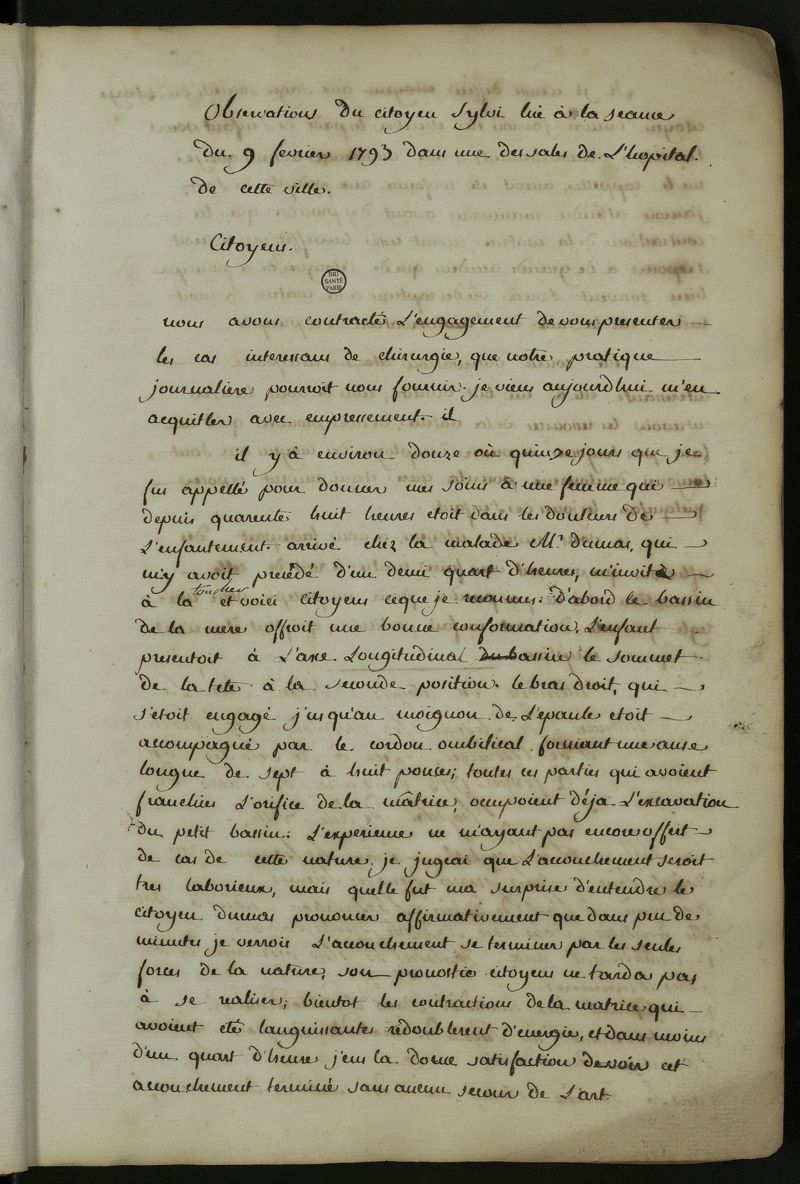 Observations du citoyen Sylvi lue à la seance
du 9 fevrier 1793 dans une des sales de L'hopital.
de cette ville.
Citoyens.
BIU
SANTÉ
PARIS
nous avons contracté L'engagement de vous presenter
les cas interessans de chirurgie, que notre pratique
journaliere pourroit nous fournir. je viens aujourdhui m'en
acquitter avec empressement. il
il y à environ douze où quinze jours que je
fus appellé pour donner mes soins à une femme qui
depuis quarente huit heures etoit dans les douleurs de
L'enfantement. arrivé chez la malade Mr. dumas, qui
m'y avoit precédé d'un demi quart d'heures, m'invita
à la toucher et voici citoyens ceque je reconnus. D'abord le bassin
de la mere offroit une bonne conformation, L'enfant
presentoit à L'axe Longitudinal du bassin le sommet
de la tete à la seconde position. le bras droit, qui
s'etoit engagé j'usqu'au moignon de L'epaule etoit
accompagné par le cordon ombilical formant une anse
longue de sept à huit pouces; toutes ces parties qui avoient
franchies L'orifice de la matrice, occupoient déja L'excavation
du petit bassin. L'experience ne m'ayant pas encore offert
de cas de cette nature, je jugeai que L'accouchement seroit
tres laborieux, mais quelle fut ma surprise d'entendre le
citoyen dumas prononcer affirmativement que dans peu de
minutes je verrois L'accouchement se terminer par les seules
forces de la nature; son pronostic citoyens ne tarda pas
à se realiser; bientot les contractions de la matrice qui
avoient eté languissantes redoublerent d'energie, et dans moins
d'un quart d'heure j'eus la douce satisfaction de voir cet
accouchement terminé sans aucun secour de L'art